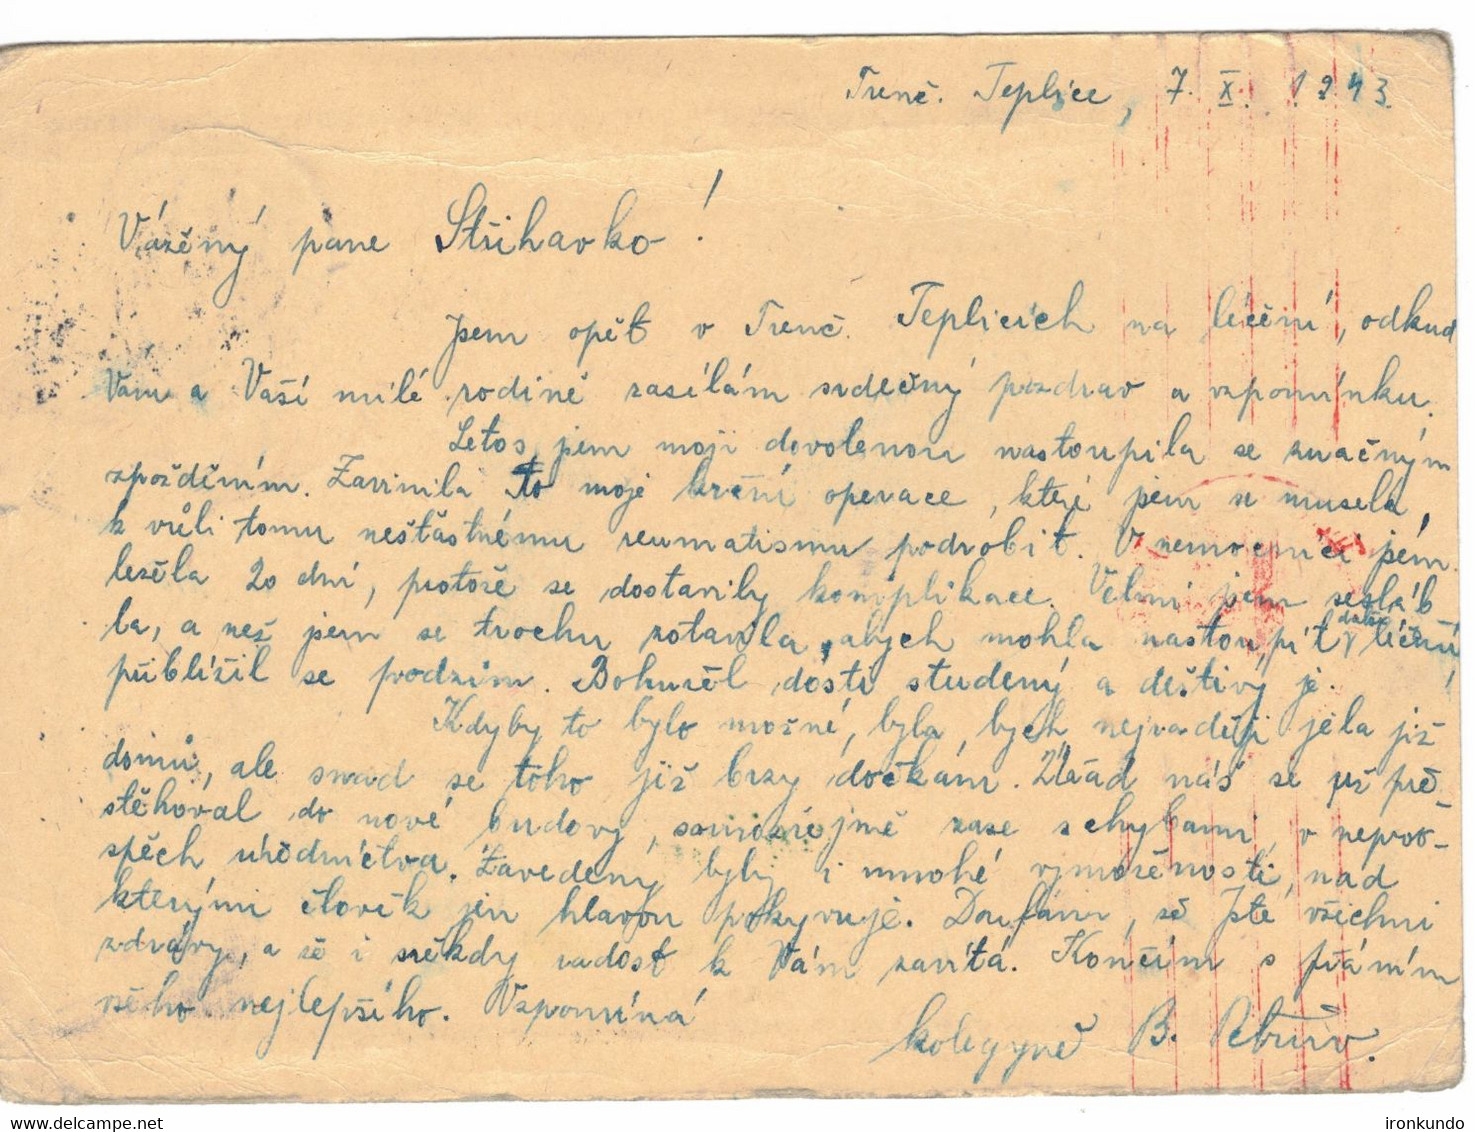 Trenč. Teplice, 7. X. 1943.
Vážený pane Střihavko!
Jsem opět v Trenč. Teplicích na léčení, odkud
Vám a Vaší milé rodině zasílám srdečný pozdrav a vzpomínku.
Letos jsem moji dovolenou nastoupila se značným
zpožděním. Zavinila to moje krční operace, které jsem se musela,
k vůli tomu nešťastnému reumatismu podrobit. V nemocnici jsem
ležela 20 dní, protože se dostavily komplikace. Velmi jsem sesláb
la, a než jsem se trochu zotavila, abych mohla nastoupit další léčení
přiblížil se podzim. Bohužel dosti studený a deštivý je.
Kdyby to bylo možné, byla bych nejraději jela již
domů, ale snad se toho již brzy dočkám. Úřad náš se už pře-
stěhoval do nové budovy, samozřejmě zase s chybami v nepros-
pěch úřednictva. Zavedeny byly i mnohé vymoženosti, nad
kterými člověk jen hlavou pokyvuje. Doufám, že Jste všichni
zdrávy, a že i někdy radost k Vám zavítá. Končím s přáním
všeho nejlepšího. Vzpomíná
kolegyně B.
ironkundo